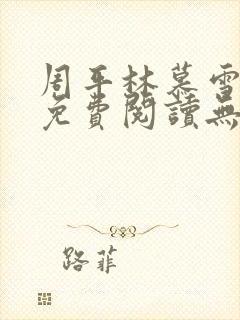 周平林慕雪
免費閱讀無
路菲